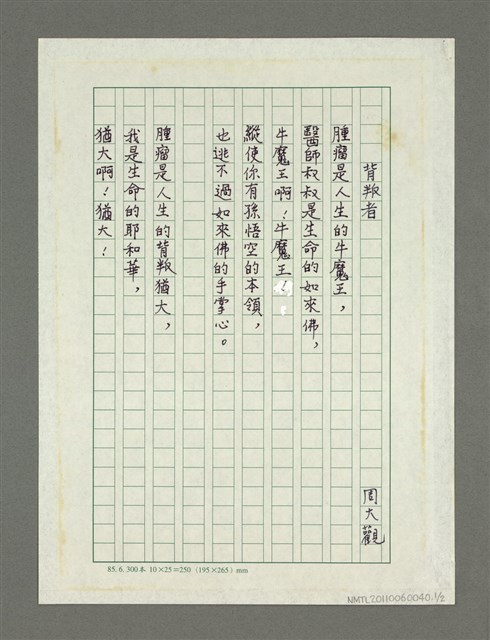 背叛者
周大觀
腫瘤是人生的牛魔王，
醫師叔叔是生命的如來佛，
牛魔王啊！牛魔王！
縱使你有孫悟空的本領，
也逃不過如來佛的手掌心。
腫瘤是人生的背叛猶大，
我是生命的耶和華，
猶大啊！猶大！
85.6.300本 10×25=250 (195×265) mm
NMTL20110060040.1/2